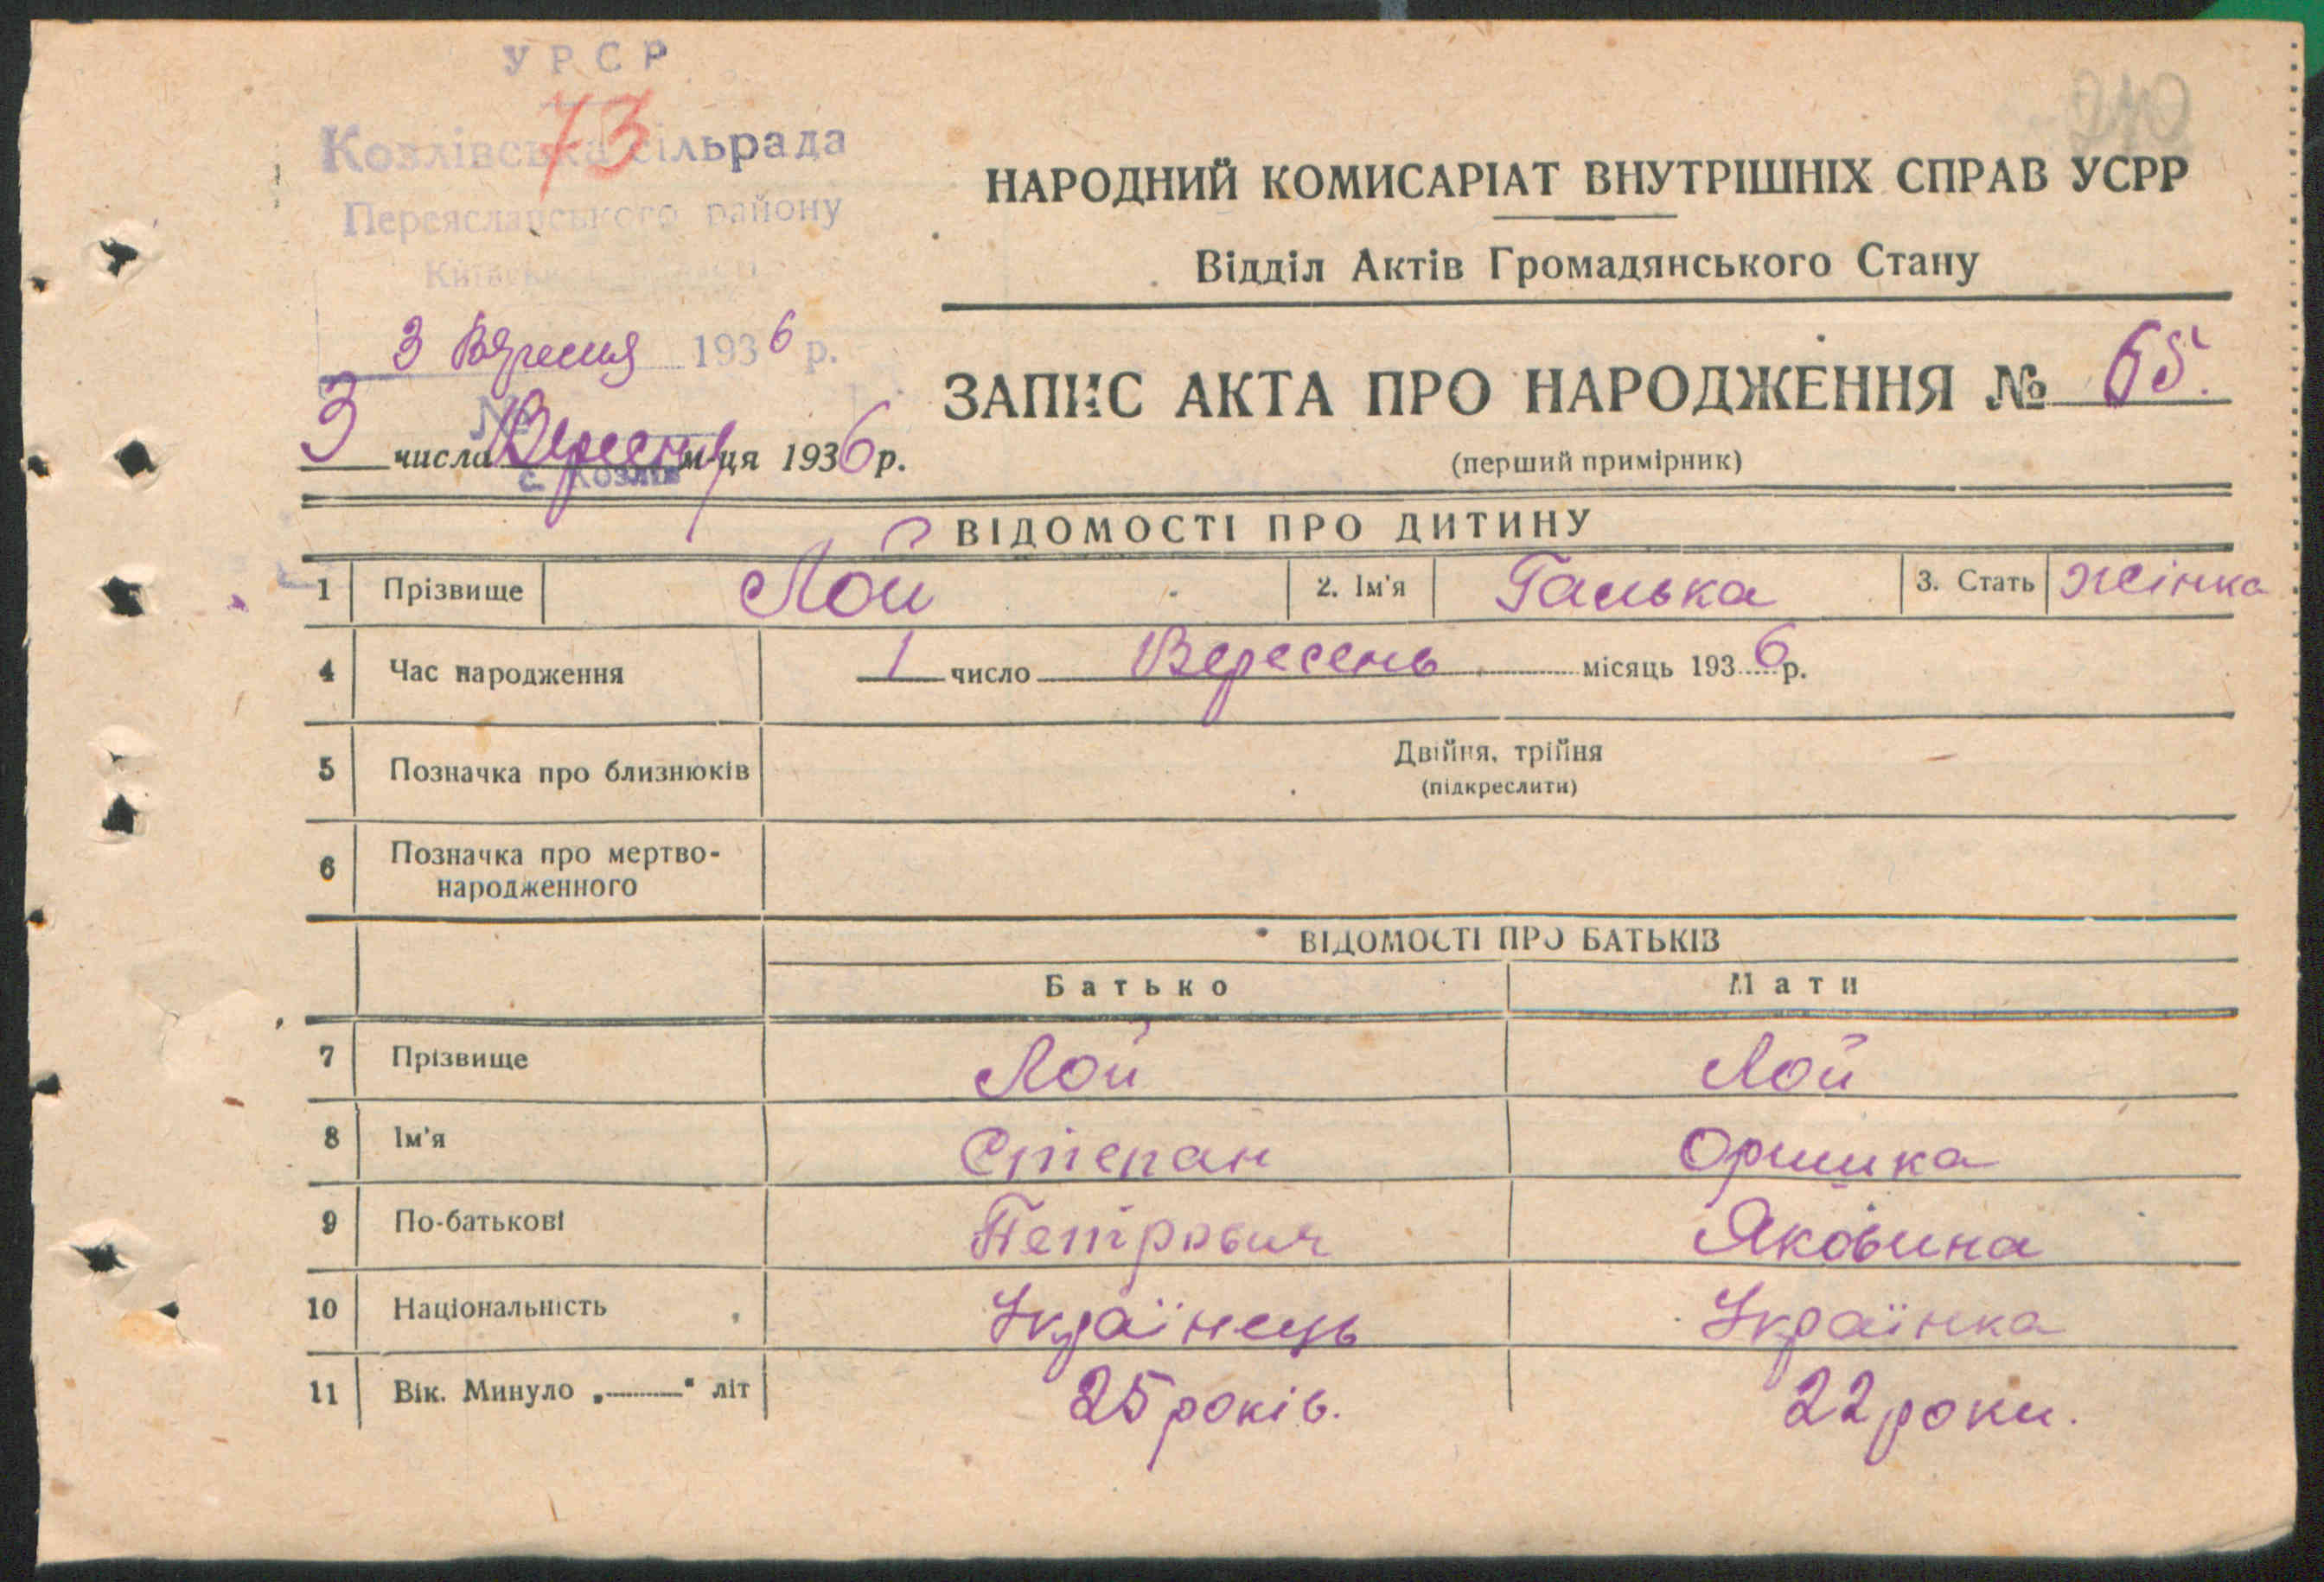 УРСР
73
Козлівська сільрада
Переяславського району
Київської області
3 Вересня 1936 р.
№
с. Козлів
3 числа Вересня м-ця 1936 р.
НАРОДНИЙ КОМИСАРІАТ ВНУТРІШНІХ СПРАВ УСРР
Відділ Актів Громадянського Стану
ЗАПИС АКТА ПРО НАРОДЖЕННЯ № 65.
(перший примірник)
ВІДОМОСТІ ПРО ДИТИНУ
1 Прізвище Лой 2. Ім'я Галька 3. Стать жінка
4 Час народження 1 число Вересень місяць 1936 р.
5 Позначка про близнюків Двійня, трійня
(підкреслити)
6 Позначка про мертво-
народженного
ВІДОМОСТІ ПРО БАТЬКІВ
Батько Мати
7 Прізвище Лой Лой
8 Ім'я Степан Оришка
9 По-батькові Петрович Яковина
10 Національність Українець Українка
11 Вік. Минуло „ “ літ 25 років. 22 роки.